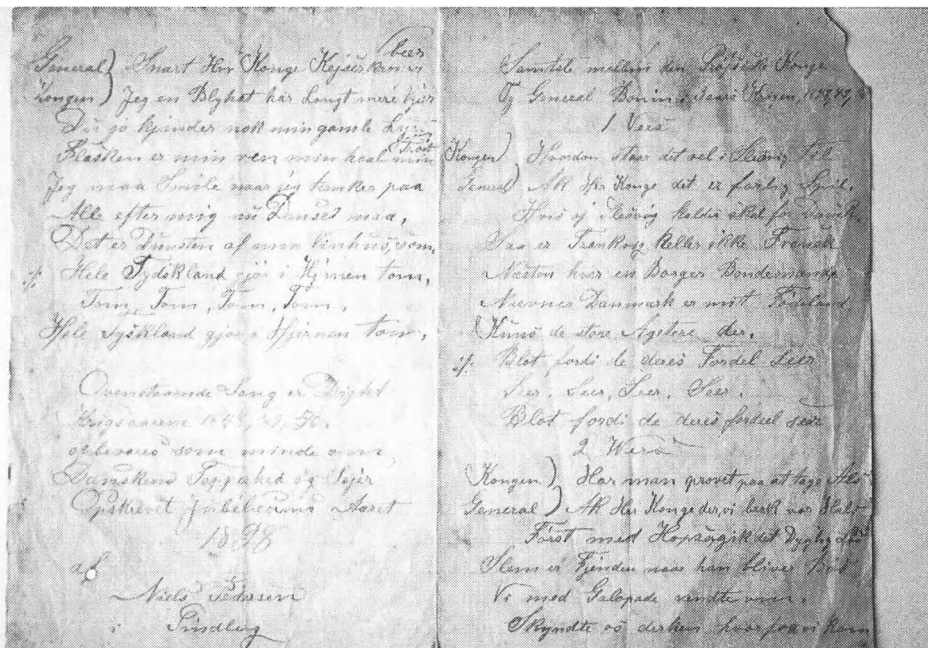 General) Snart Hr Konge Kejserkron vi
beer
Kongen) Jeg en Blyhat har Langt mere kjær
Du jo kjender nok min gamle Lyst
Flasken er min ven min haab min
Trøst
Jeg maa Smile naar jeg tænker paa
Alle efter mig nu Danses maa,
Det er Dunsten af min Vinhus, som,
:/: Hele Tydskland gjør i Hjernen tom,
Tom, Tom, Tom, Tom.
Hele Tyskland gjøre Hjernen tom.
Ovenstaaende Sang er Digtet
Krigsaarene 1848, 49, 50.
som minde om
Danskens Tapperhed og Sejer
Opskrevet Jubelæums Aaret
1898
af
Niels Pedersen
i Tindberg
Samtale mellem den Prøjsiske Konge
Og General Bonin i Krigen, 1848, 49, 50
1 Vers
Kongen) Hvordan staar det vel i Slesvig til
General) Ak Hr Konge det er farlig Spil.
Hvis ej Slesvig kaldes skal for Dansk.
Saa er Frankrig heller ikke Fransk
Næsten hver en Borger Bondemand
Nævner Danmark er mitt Fødeland
Kuns de store der.
:/: Blot fordi de deres Fordel Seer
Seer, Seer, Seer, Seer.
Blot fordi de deres fordeel seer
2 Vers
Kongen) Har man prøvet paa at tage Als
General) Ak Her Konge der, vi bræk vor Hals
Først med Hopsagik det Dygtig
Slem er Fjenden naar han bliver
Vi med Galopade vendte om.
Skyndte os derhen hvorfra vi kom